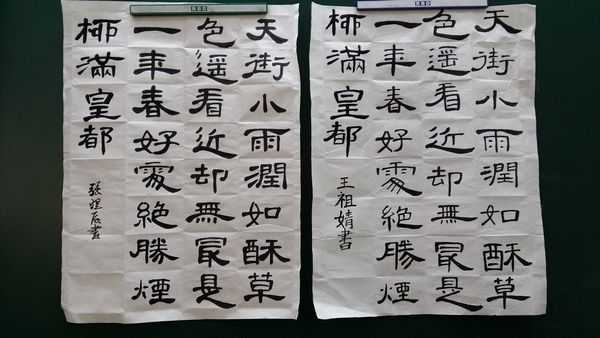 天街小雨潤如酥草
色遥看近却無冣是
一年春好處絶勝煙
柳滿皇都
張煜辰書
天街小雨潤如酥草
色遥看近却無冣是
一年春好處絶勝煙
柳滿皇都
王祖婧書